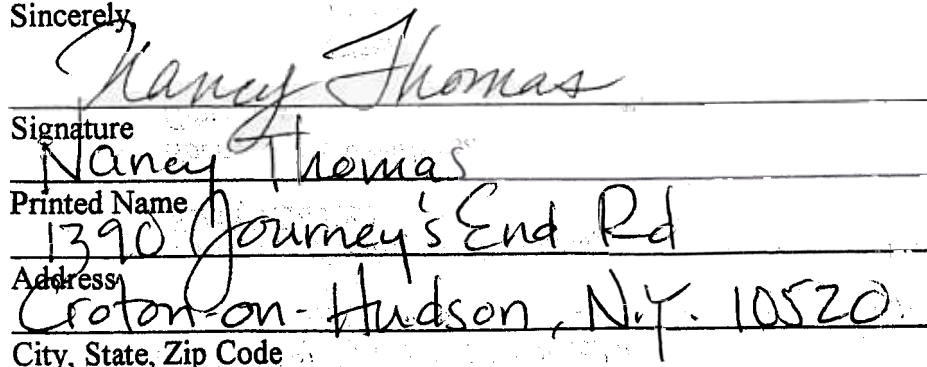 Sincerely,
Nancy Thomas
Signature
Nancy Thomas
Printed Name
1390 Journey's End Rd
Address
Croton-on-Hudson, N.Y. 10520
City, State, Zip Code